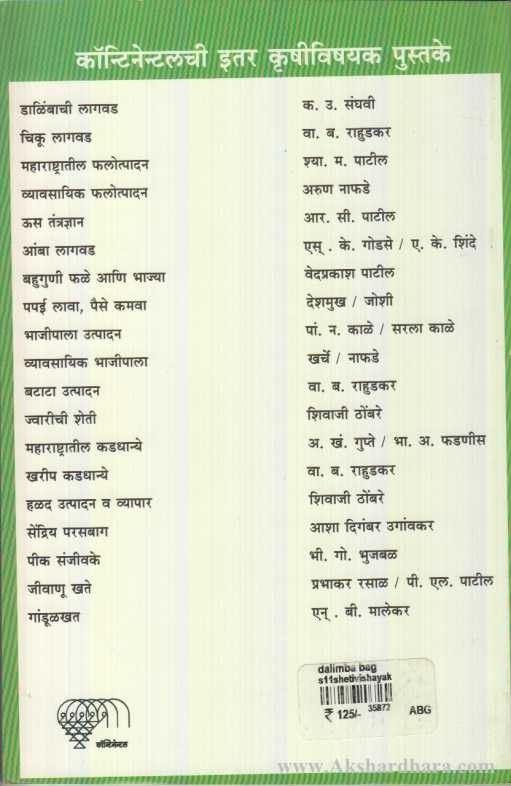 कॉन्टिनेन्टलची इतर कृषीविषयक पुस्तके
डाळिंबाची लागवड क. उ. संघवी
चिकू लागवड वा. ब. राहुडकर
महाराष्ट्रातील फलोत्पादन श्या. म. पाटील
व्यावसायिक फलोत्पादन अरुण नाफडे
ऊस तंत्रज्ञान आर. सी. पाटील
आंबा लागवड एस् . के. गोडसे / ए. के. शिंदे
बहुगुणी फळे आणि भाज्या वेदप्रकाश पाटील
पपई लावा, पैसे कमवा देशमुख / जोशी
भाजीपाला उत्पादन पां. न. काळे / सरला काळे
व्यावसायिक भाजीपाला खर्चे / नाफडे
बटाटा उत्पादन वा. ब. राहुडकर
ज्वारीची शेती शिवाजी ठोंबरे
महाराष्ट्रातील कडधान्ये अ. खं. गुप्ते / भा. अ. फडणीस
खरीप कडधान्ये वा. ब. राहुडकर
हळद उत्पादन व व्यापार शिवाजी ठोंबरे
सेंद्रिय परसबाग आशा दिगंबर उगांवकर
पीक संजीवके भी. गो. भुजबळ
जीवाणू खते प्रभाकर रसाळ / पी. एल. पाटील
गांडूळखत एन् . बी. मालेकर
dalimba bag
s11shetivishayak
₹ 125/- 35872 ABG
कॉन्टिनेन्टल
www.Akshardhara.com